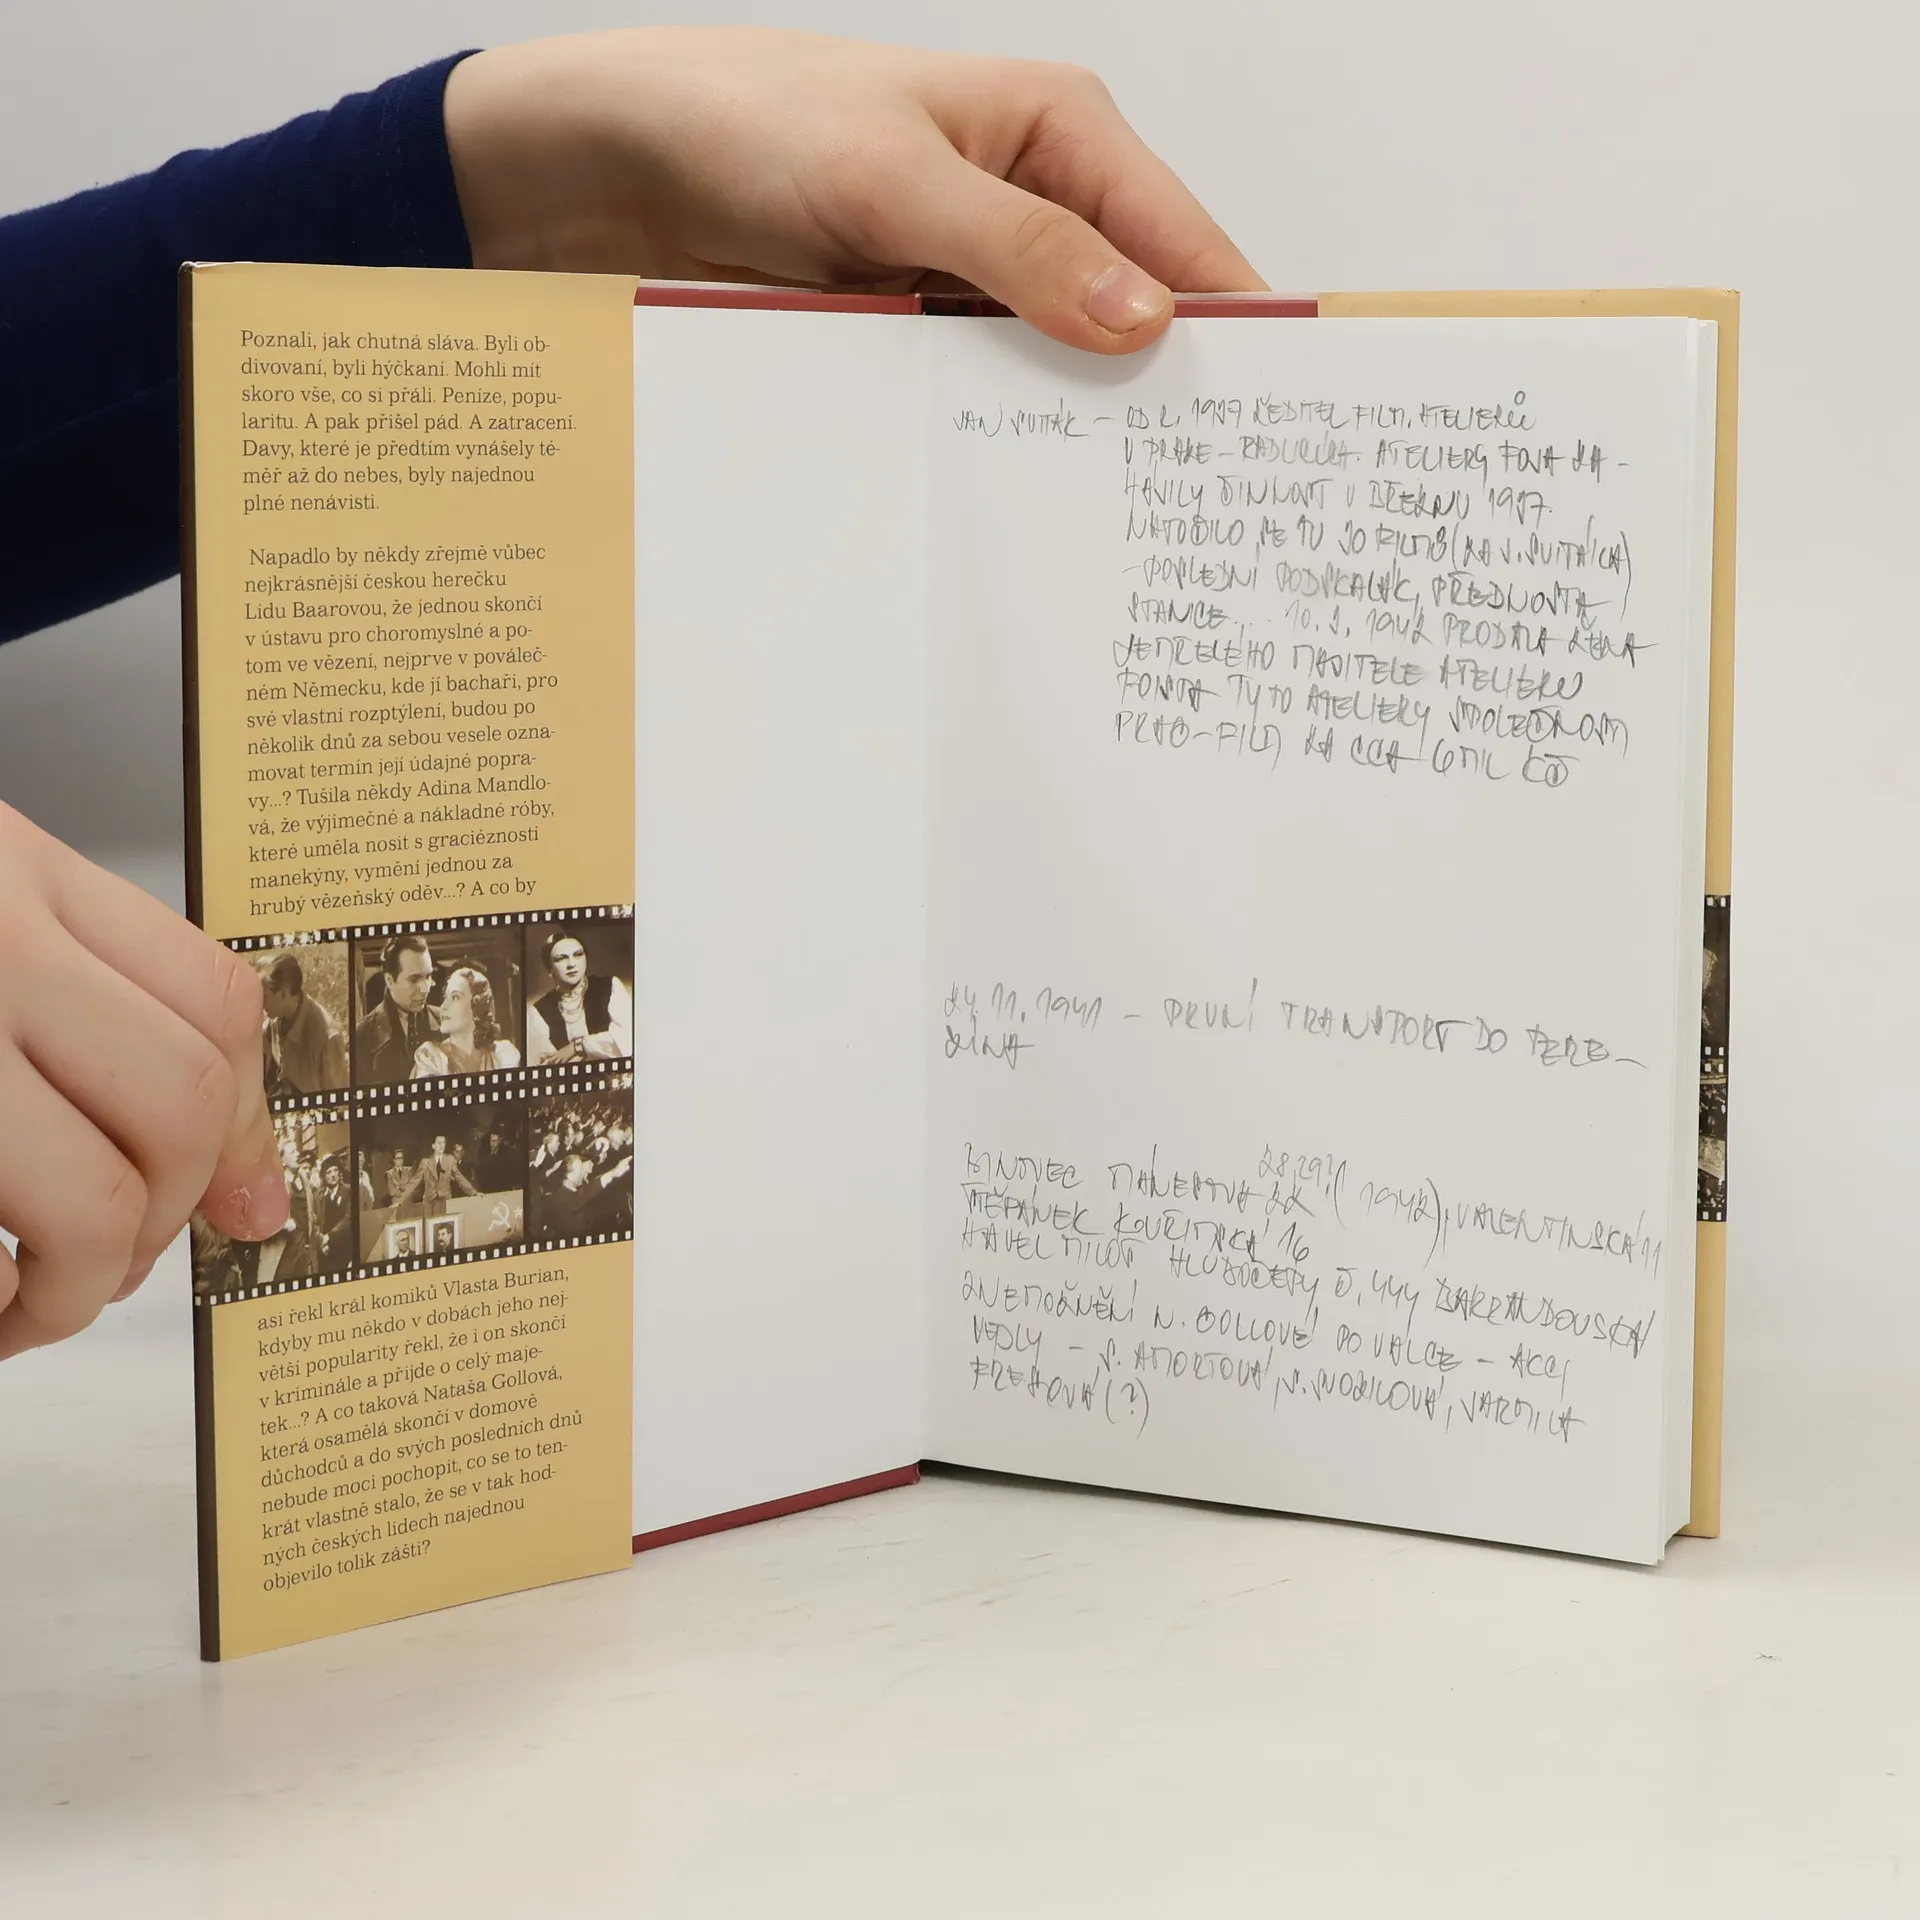 Poznali, jak chutná sláva. Byli ob-
divovaní, byli hýčkaní. Mohli mít
skoro vše, co si přáli. Peníze, popu-
laritu. A pak přišel pád. A zatracení.
Davy, které je předtím vynášely té-
měř až do nebes, byly najednou
plné nenávisti.
Napadlo by někdy zřejmě vůbec
nejkrásnější českou herečku
Lídu Baarovou, že jednou skončí
v ústavu pro choromyslné a po-
tom ve vězení, nejprve v pováleč-
ném Německu, kde jí bachaři, pro
své vlastní rozptýlení, budou po
několik dnů za sebou vesele ozna-
movat termín její údajné popra-
vy...? Tušila někdy Adina Mandlo-
vá, že výjimečné a nákladné róby,
které uměla nosit s graciézností
manekýny, vymění jednou za
hrubý vězeňský oděv...? A co by
asi řekl král komiků Vlasta Burian,
kdyby mu někdo v dobách jeho nej-
větší popularity řekl, že i on skončí
v kriminále a přijde o celý maje-
tek...? A co taková Nataša Gollová,
která osamělá skončí v domově
důchodců a do svých posledních dnů
nebude moci pochopit, co se to ten-
krát vlastně stalo, že se v tak hod-
ných českých lidech najednou
objevilo tolik zášti?
JAN SVITÁK – OD R. 1937 ŘEDITEL FILM. ATELIERŮ
V PRAZE – RADLICÍCH. ATELIERY FOJA ZA-
HÁJILY ČINNOST V BŘEZNU 1937.
NATOČILO SE TU 30 FILMŮ (ZA J. SVITÁKA)
– POSLEDNÍ PODSKALÁK, PŘEDNOSTA
STANICE... 10. 3. 1942 PRODALA ŽENA
ZEMŘELÉHO MAJITELE ATELIERU
TYTO ATELIERY SPOLEČNOSTI
PRAG-FILM ZA CCA 6 MIL KČ
24. 11. 1941 – PRVNÍ TRANSPORT DO TERE-
ZÍNA
BINOVEC MÁNESOVA 28, 29? (1942), VALENTINSKÁ 11
ŠTĚPÁNEK KOUŘIMSKÁ 16
HAVEL MILOŠ HLUBOČEPY Č. 444 BARRANDOVSKÁ
ZNEMOŽNĚNÍ N. GOLLOVÉ PO VÁLCE – AKCI
VEDLY – S. AMORTOVÁ, S. SVOZILOVÁ, JARMILA
(?)